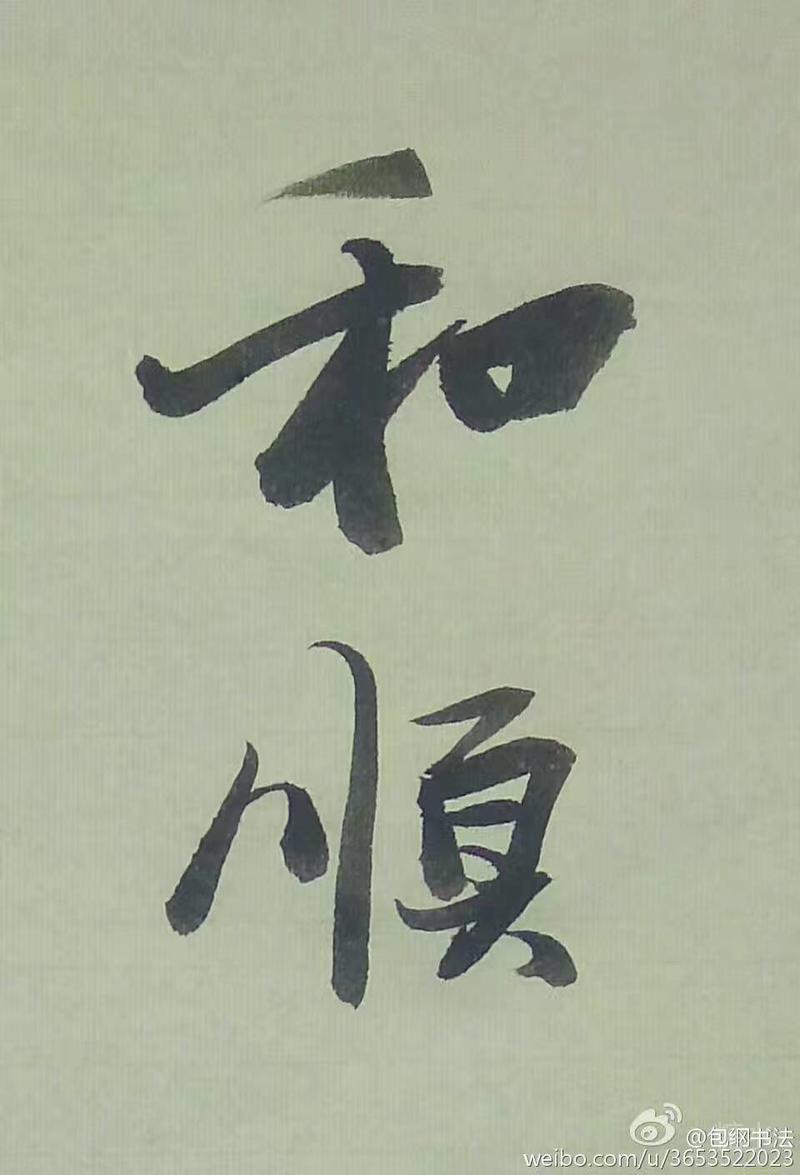 和
順
@包纲书法
weibo.com/u/3653522023